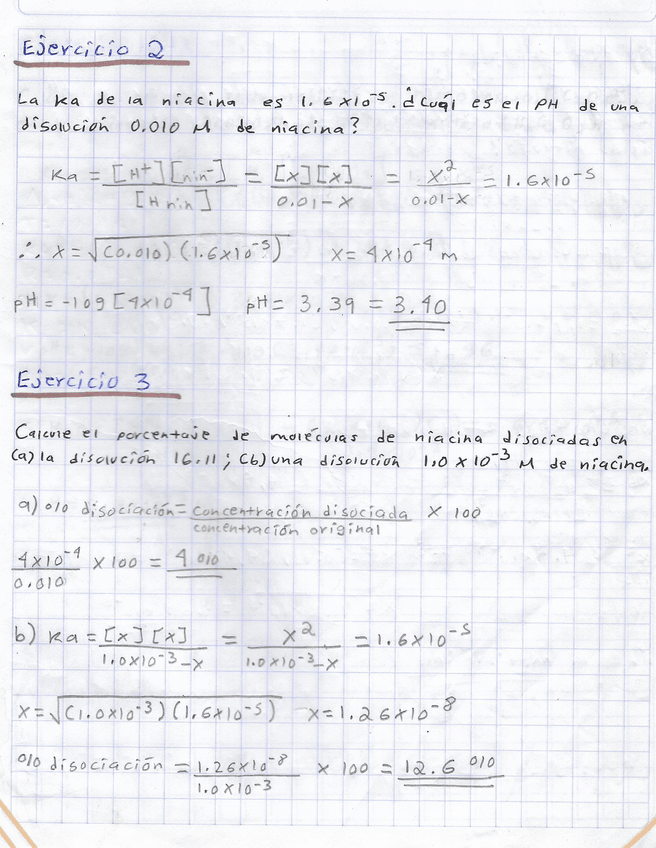 Ejercicio 2
La Ka de la niacina es 1.6x10⁻⁵. ¿Cuál es el pH de una
disolución 0.010 M de niacina?
Ka = [H⁺][nin⁻] / [H nin] = [x][x] / 0.01-x = x² / 0.01-x = 1.6x10⁻⁵
∴ x = √(0.010)(1.6x10⁻⁵) x = 4x10⁻⁴ m
pH = -log [4x10⁻⁴] pH = 3.39 = 3.40
Ejercicio 3
Calcule el porcentaje de moléculas de niacina disociadas en
(a) la disolución 16.11; (b) una disolución 1.0 x 10⁻³ M de niacina.
a) % disociación = concentración disociada / concentración original x 100
4x10⁻⁴ / 0.010 x 100 = 4 %
b) Ka = [x][x] / 1.0x10⁻³-x = x² / 1.0x10⁻³-x = 1.6x10⁻⁵
x = √(1.0x10⁻³)(1.6x10⁻⁵) x = 1.26x10⁻⁸
% disociación = 1.26x10⁻⁸ / 1.0x10⁻³ x 100 = 12.6 %